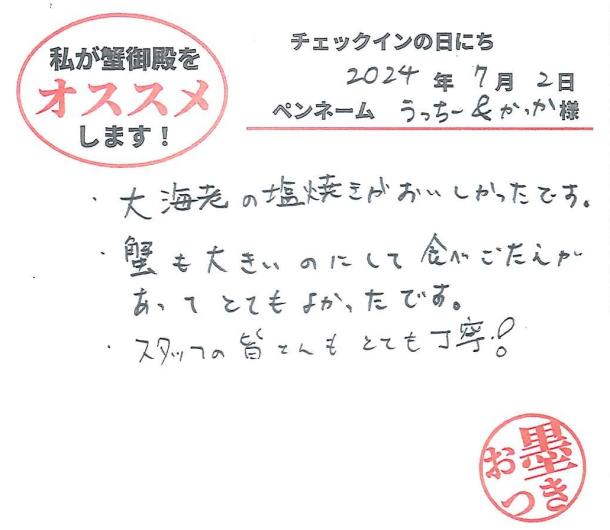 私が蟹御殿を
オススメ
します！
チェックインの日にち
2024年7月2日
ペンネーム うっちー&かっか様
・大海老の塩焼きがおいしかったです。
・蟹も大きいのにして食べごたえが
あってとてもよかったです。
・スタッフの皆さんもとても丁寧!
お墨
つき